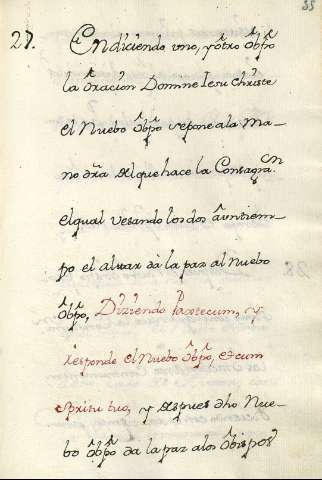 55
27. En diciendo uno, y otro Obpo
la Oracion Domine Iesu Christe
el Nuebo Obpo se pone a la Ma-
no dra del que hace la Consagraon
el qual vesando los dos a un tiem-
po el altar da la paz al Nuebo
Obpo, Diziendo Pax tecum, y
responde el Nuebo Obpo, et cum
spiritu tuo, y despues dho Nue-
bo Obpo da la paz a los Obispos